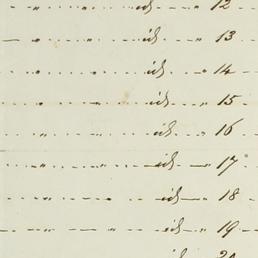 id 12
id 13
id 14
id 15
id 16
id 17
id 18
id 19
id 20